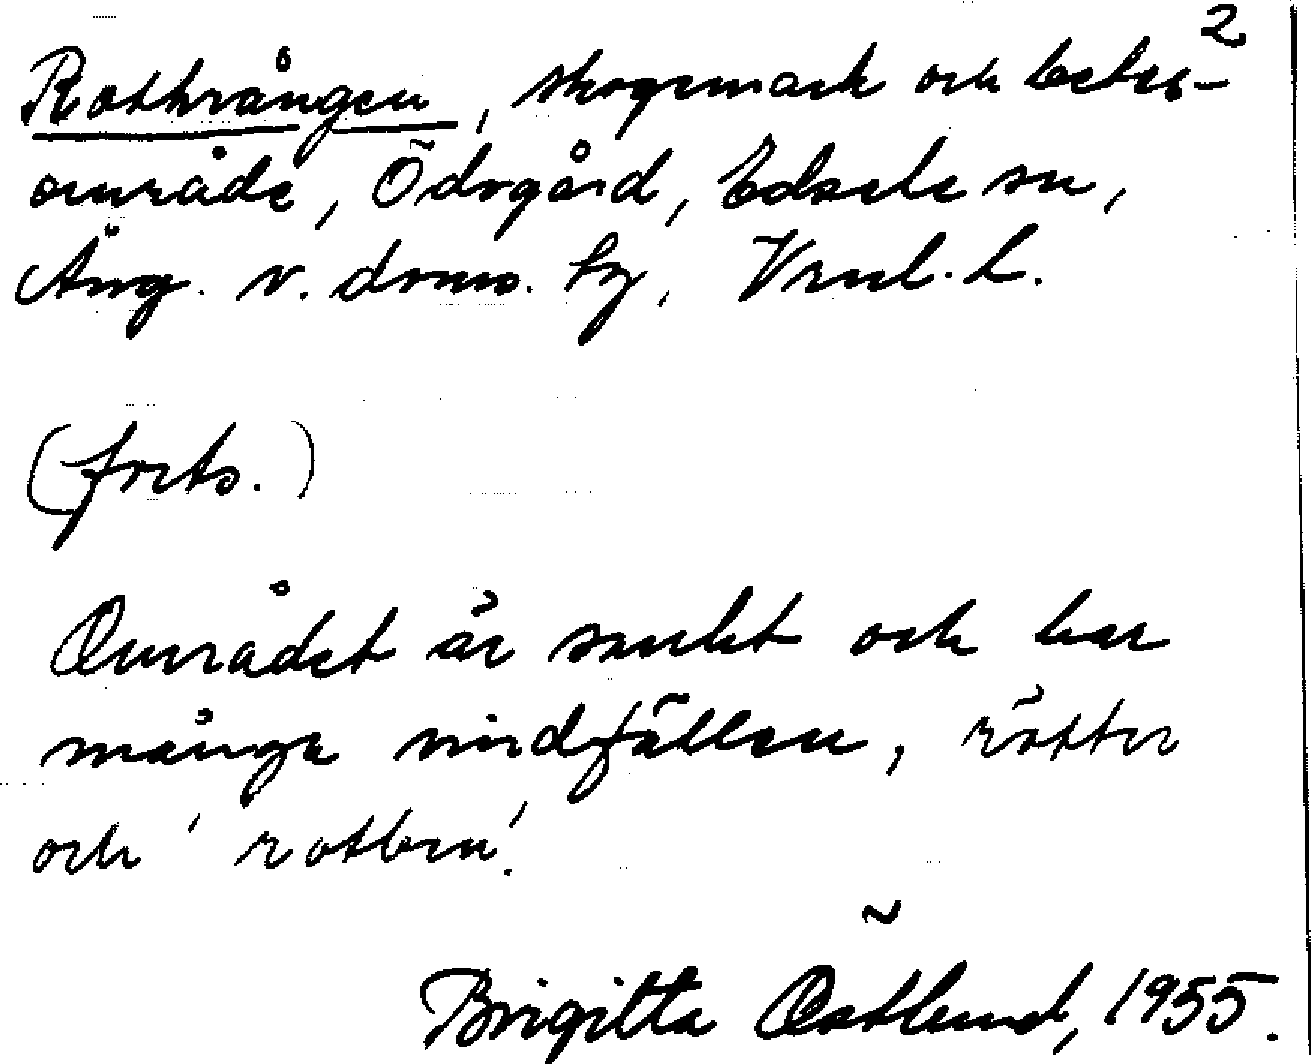 2
Rothrången, skogsmark och betes-
område, Ödsgård, Edsele sn,
Ång. v. doms. hg, Vnl. L.
(forts.)
Området är sankt och har
många vindfällen, rötter
och 'rotben'.
Brigitta Östlund, 1955.